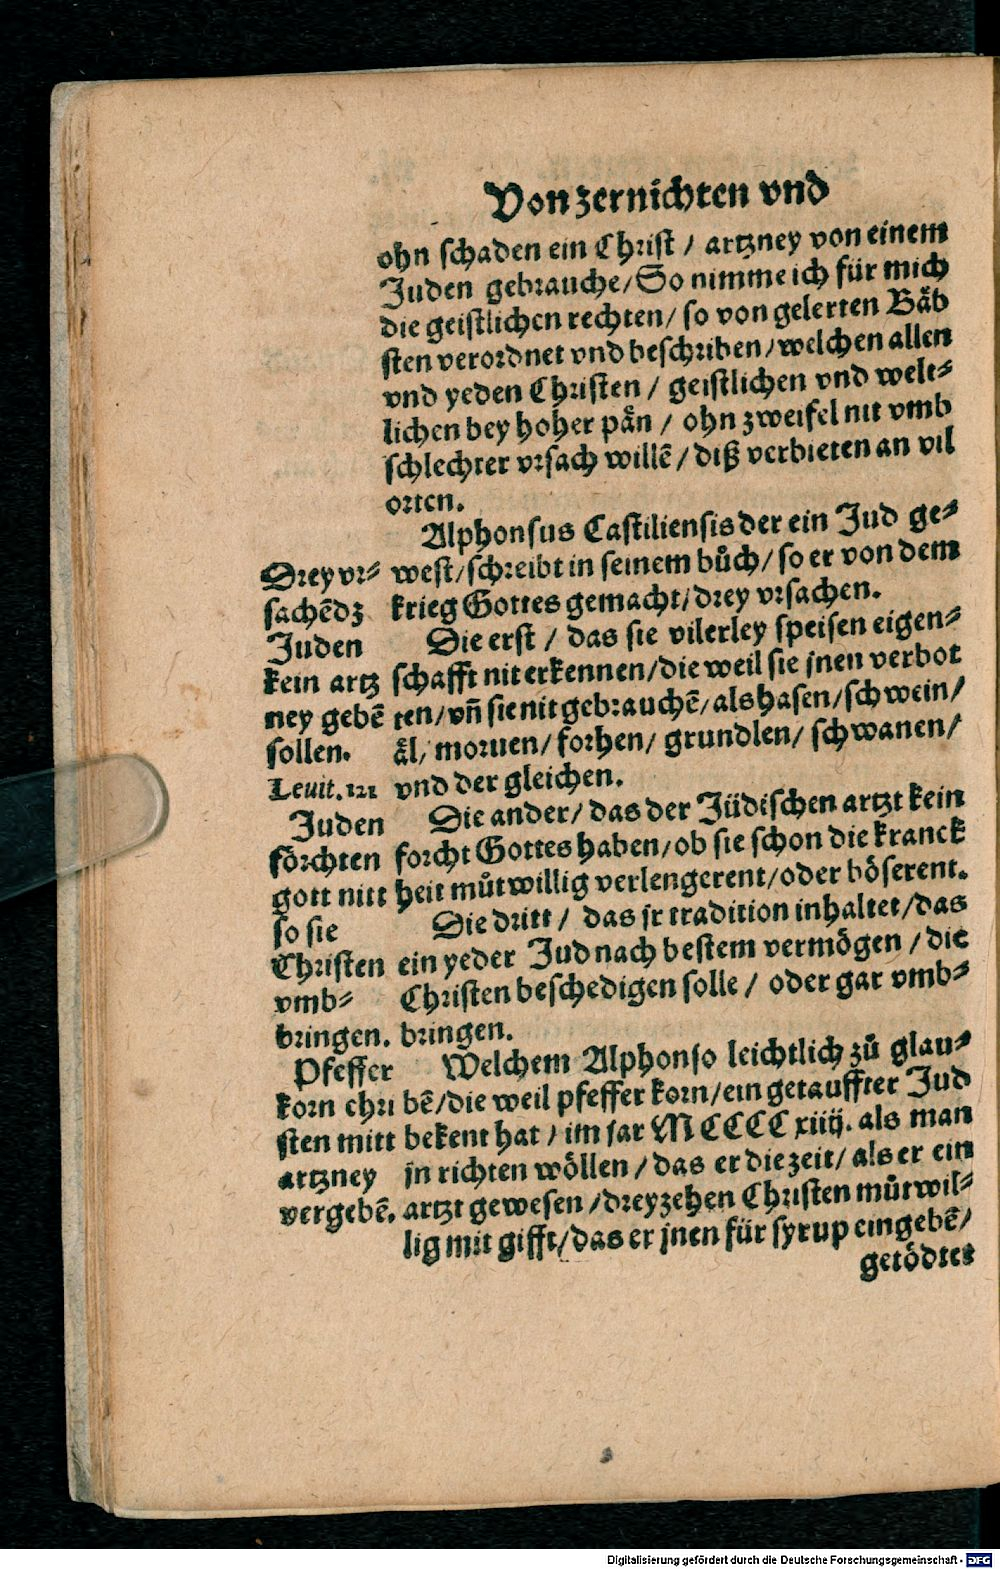 Von zernichten vnd
ohn schaden ein Christ / artzney von einem
Juden gebrauche / So nimme ich für mich
die geistlichen rechten / so von gelerten Bäb
sten verordnet vnd beschriben / welchen allen
vnd yeden Christen / geistlichen vnd welt⸗
lichen bey hoher pän / ohn zweifel nit vmb
schlechter vrsach willẽ / diß verbieten an vil
orten.
Alphonsus Castiliensis der ein Jud ge⸗
west / schreibt in seinem bůch / so er von dem
krieg Gottes gemacht / drey vrsachen.
Die erst / das sie vilerley speisen eigen⸗
schafft nit erkennen / die weil sie jnen verbot
ten / vñ sie nit gebrauchẽ / als hasen / schwein /
äl / moruen / forhen / grundlen / schwanen /
vnd der gleichen.
Die ander / das der Jüdischen artzt kein
forcht Gottes haben / ob sie schon die kranck
heit můtwillig verlengerent / oder böserent.
Die dritt / das jr tradition inhaltet / das
ein yeder Jud nach bestem vermögen / die
Christen beschedigen solle / oder gar vmb⸗
bringen.
Welchem Alphonso leichtlich zů glau⸗
bẽ / die weil pfeffer korn / ein getauffter Jud
bekent hat / im jar MCCCC xiiij. als man
jn richten wöllen / das er die zeit / als er ein
artzt gewesen / dreyzehen Christen můtwil⸗
lig mit gifft / das er jnen für syrup eingebẽ /
getödtet
Drey vr⸗
sachẽ dz
Juden
kein artz
ney gebẽ
sollen.
Leuit.
Juden
förchten
gott nitt
so sie
Christen
vmb⸗
bringen.
Pfeffer
korn chri
sten mitt
artzney
vergebẽ.
Digitalisierung gefördert durch die Deutsche Forschungsgemeinschaft - DFG